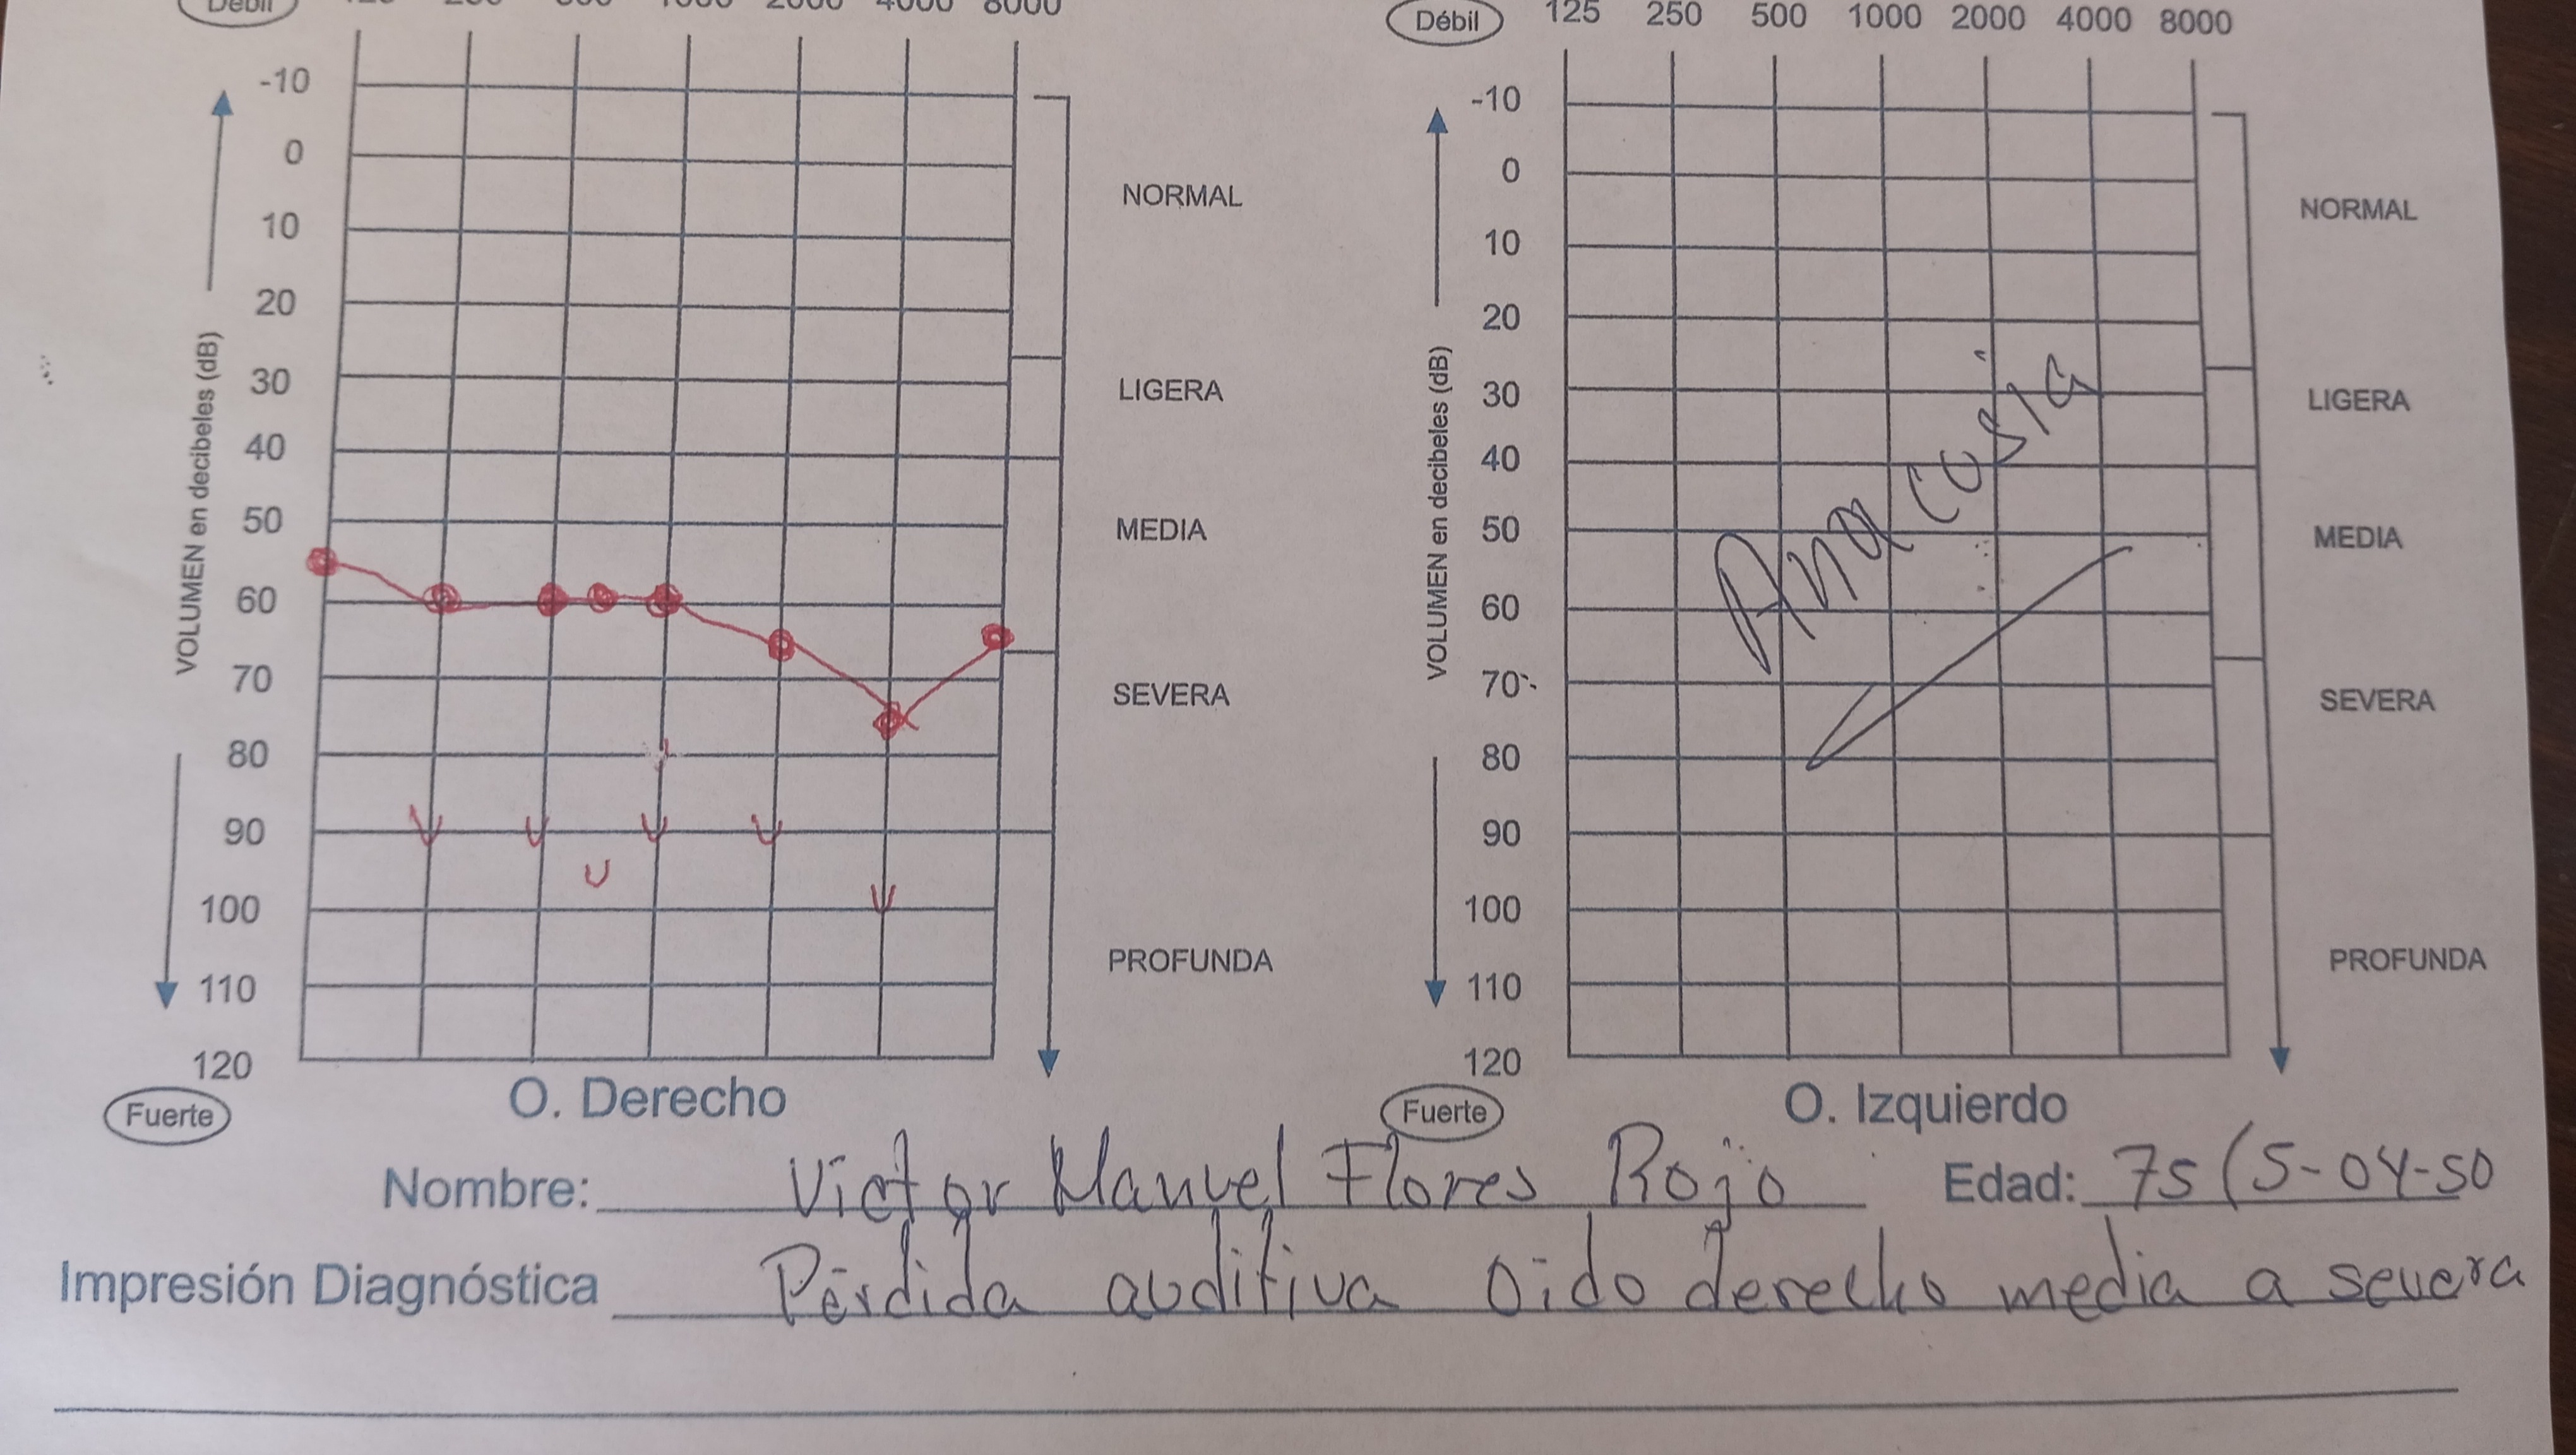 Débil 125 250 500 1000 2000 4000 8000
-10
0
10
20
30
40
50
60
70
80
90
100
110
120
VOLUMEN en decibeles (dB)
NORMAL
LIGERA
MEDIA
SEVERA
PROFUNDA
Fuerte
O. Derecho
Débil 125 250 500 1000 2000 4000 8000
-10
0
10
20
30
40
50
60
70
80
90
100
110
120
VOLUMEN en decibeles (dB)
Anacusia
NORMAL
LIGERA
MEDIA
SEVERA
PROFUNDA
Fuerte
O. Izquierdo
Nombre: Victor Manuel Flores Rojo Edad: 75 (5-04-50
Impresión Diagnóstica Pérdida auditiva Oido derecho media a severa